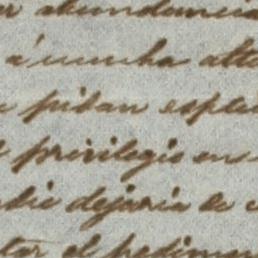 abundancia
á mucha alt
pidan esple
privilegio en
die dejaria de
tar el pedimen